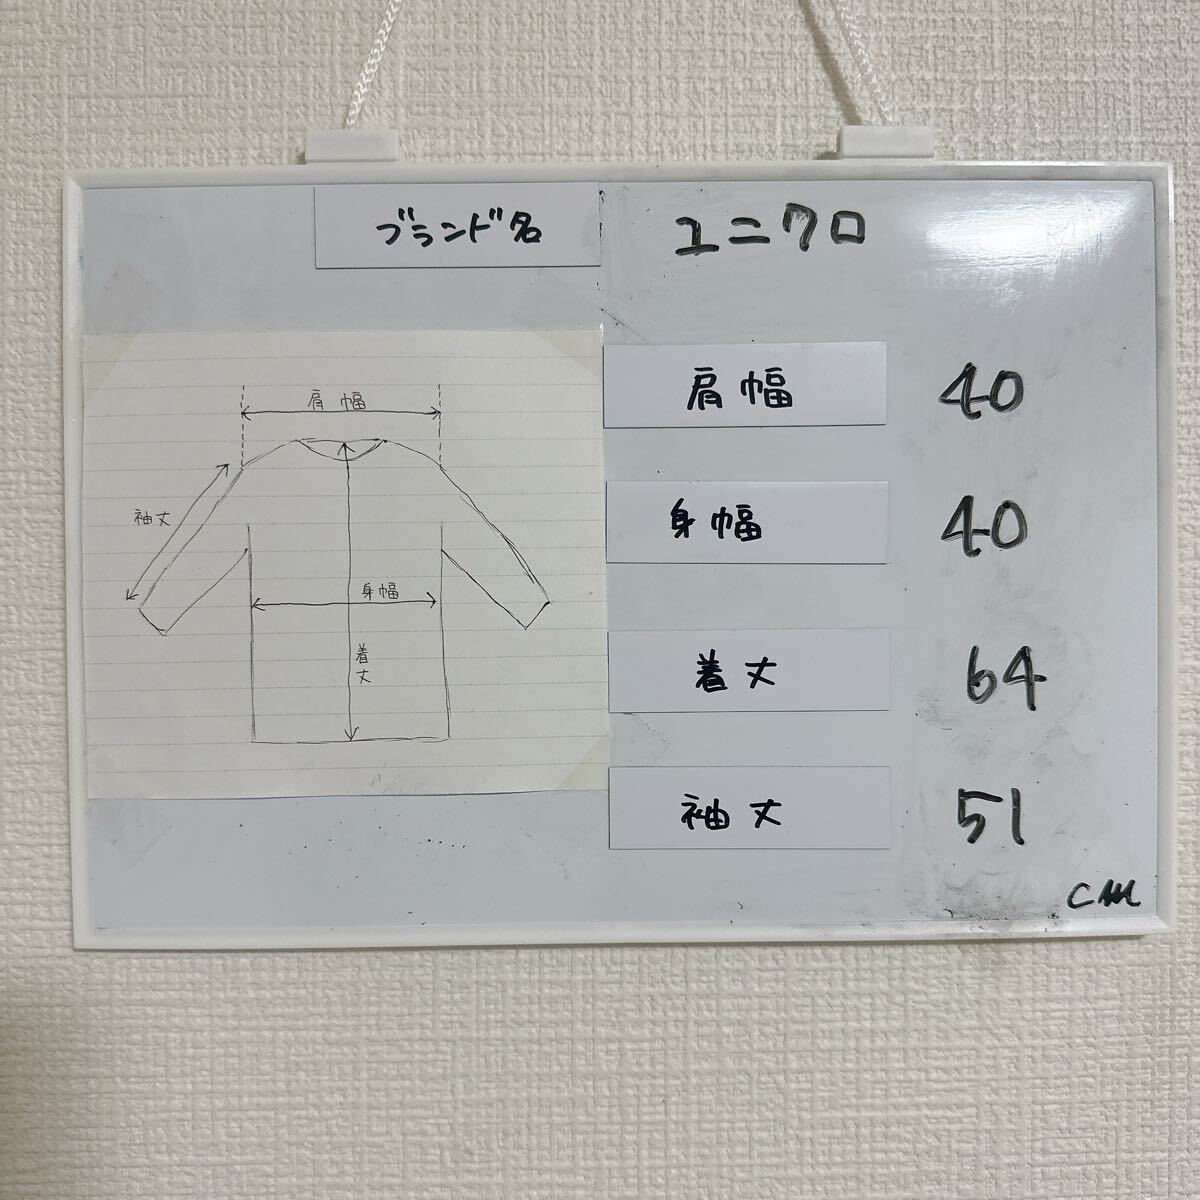 ブランド名 ユニクロ
肩幅
袖丈
身幅
着丈
肩幅 40
身幅 40
着丈 64
袖丈 51
cm